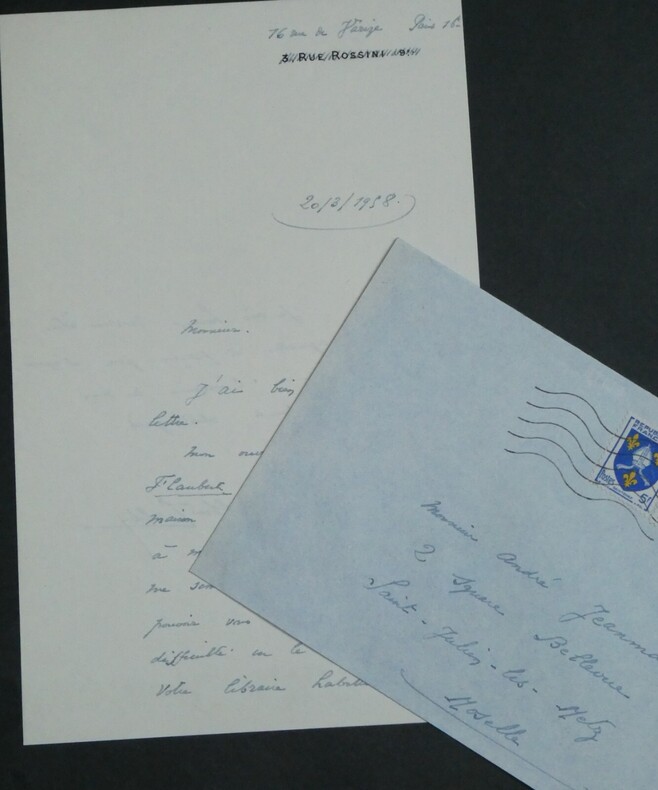 16 rue de Varize Paris 16e
3 RUE ROSSINI 9e
20/3/1958.
Monsieur.
J'ai bien
lettre.
Mon
Flaubert
maison
à
me
pouvoir vous
difficulté le
votre libraire
REPUB
FRANC
5f
Monsieur André
2 Square Bellevue
Saint-Julien-les-Metz
Moselle